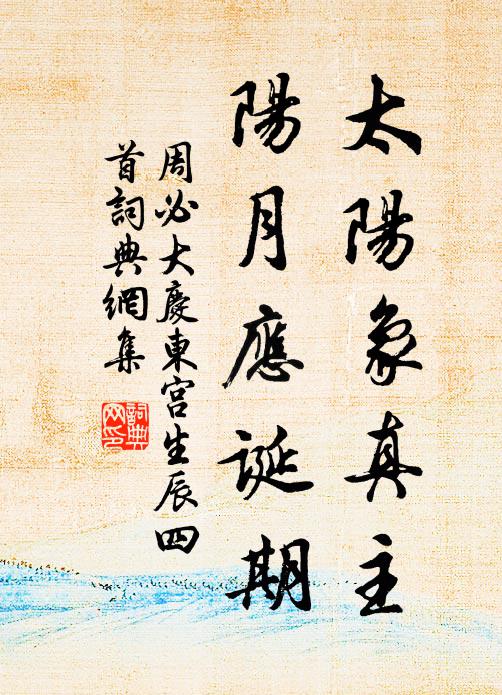 太陽象真主
陽月應誕期
周必大慶東宮生辰四
首詞典網集
詞典
网印